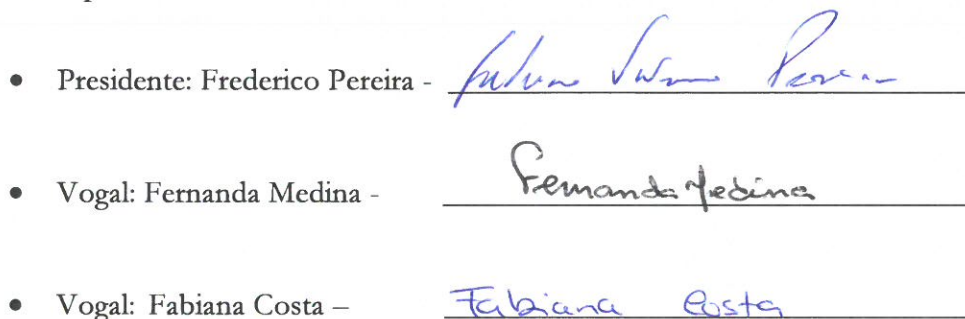 • Presidente: Frederico Pereira -
• Vogal: Fernanda Medina - Fernanda Medina
• Vogal: Fabiana Costa – Fabiana Costa